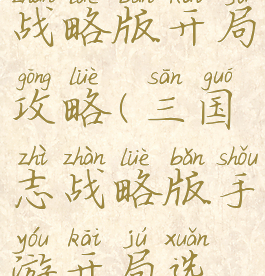 zhàn lüè bǎn kāi jú
战略版开局
gōng lüè sān guó
攻略(三国
zhì zhàn lüè bǎn shǒu
志战略版手
yóu kāi jú xuǎn
游开局选